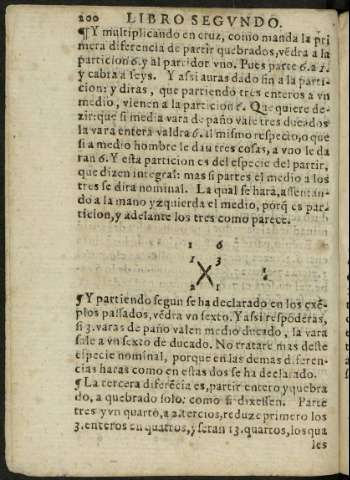 200 LIBRO SEGVNDO.
¶Y multiplicando en cruz, como manda la pri
mera diferencia de partir quebrados, vẽdra a la
particion 6. y al partidor vno. Pues parte 6. a 1.
y cabra a seys. Y assi auras dado fin a la parti-
cion: y diras, que partiendo tres enteros a vn
medio, vienen a la particion 6. Que quiere de-
zir: que si media vara de paño vale tres ducados
la vara entera valdra 6. il mismo respecto, o que
si a medio hombre le dau tres cosas, a vno le da
ran 6. Y esta particion es del especie del partir,
que dizen integral: mas si partes el medio a los
tres se dira nominal. La qual se hara, assentan-
do a la mano yzquierda el medio, porq̃ es par-
ticion, y adelante los tres como parece.
1 6
1 3
2 1
¶Y partiendo segun se ha declarado en los exẽ-
plos passados, vẽdra vn sexto. Y assi respõderas,
si 3. varas de paño valen medio ducado, la vara
sale a vn sexto de ducado. No tratare mas deste
especie nominal, porque en las demas diferen-
cias haras como en estas dos se ha declarado.
¶La tercera diferẽcia es, partir entero y quebra
do, a quebrado solo: como si dixessen. Parte
tres y vn quarto, a 2. tercios, reduze primero los
3. enteros en quartos, y seran 13. quartos, los qua
les